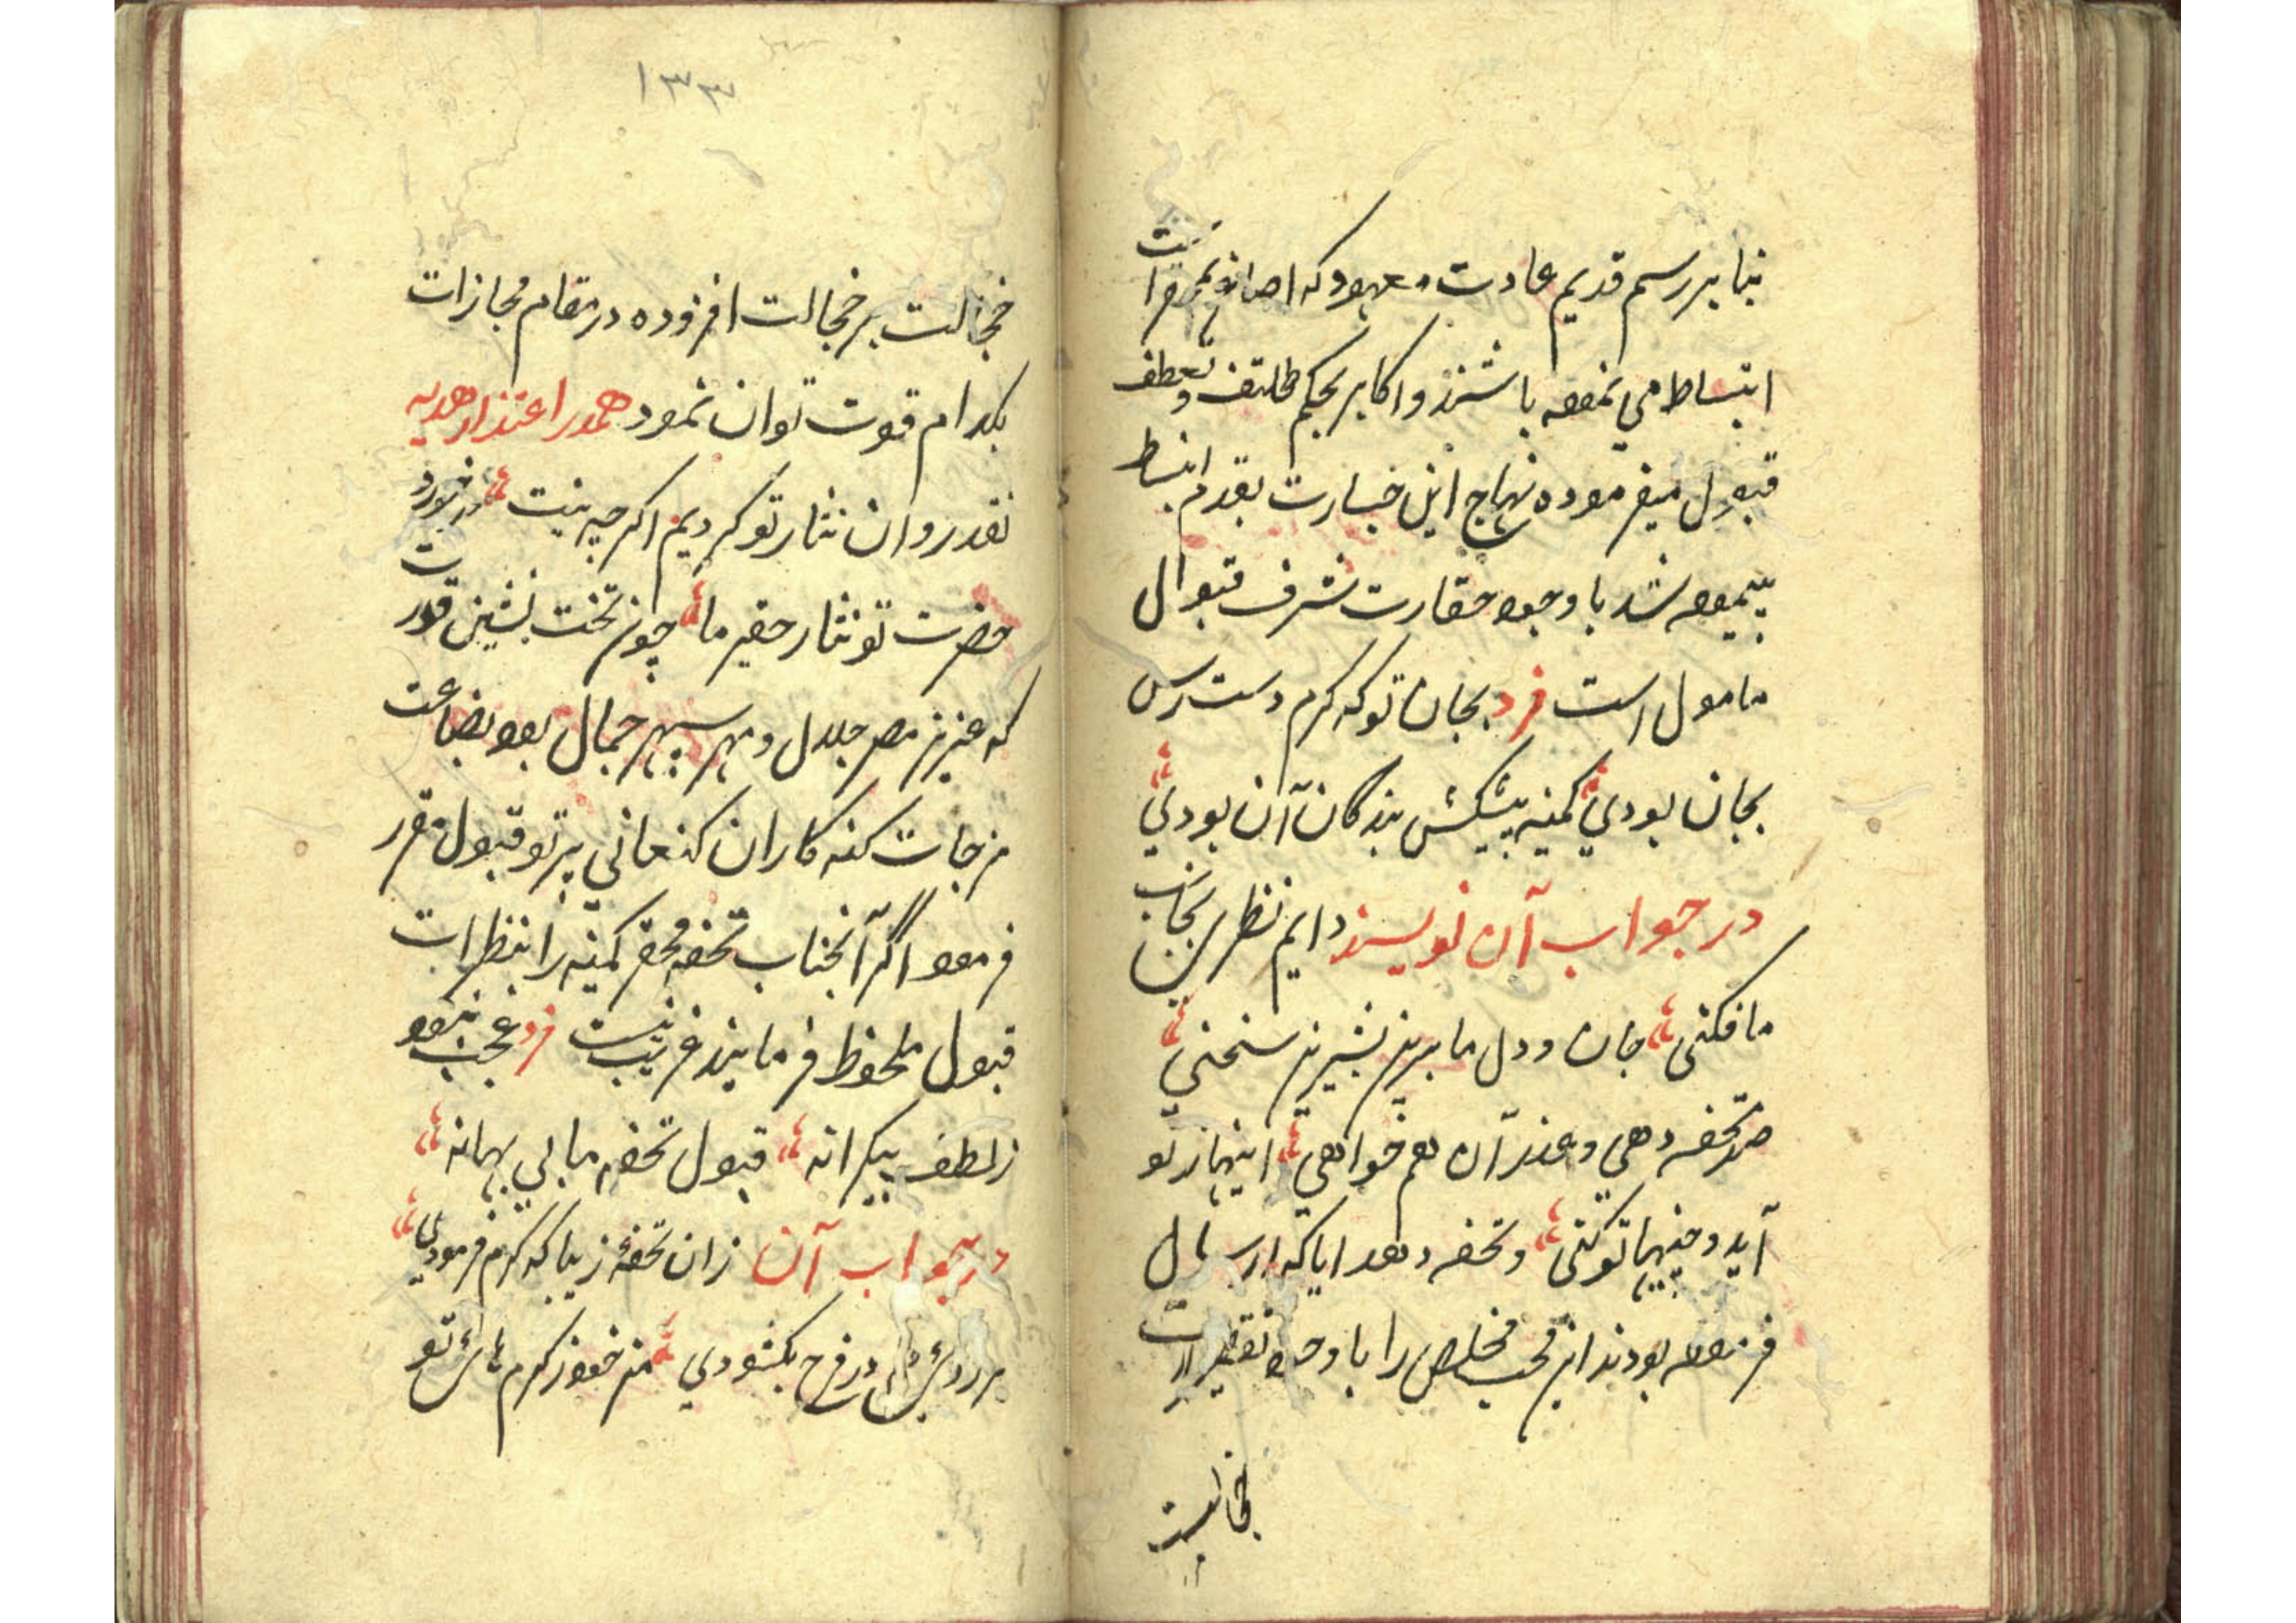 بنا بر رسم قدیم عادت معهود که اصاغر
انبساط می نموده باشند و اکابر بحکم تلطف و تعطف
قبول میفرموده نهاج این خسارت بقدم انبساط
پیموده شد با وجود حقارت شرف قبول ال
مامول است فرد بجان تو که کرم دست رس
بجان بودی کمینه پیشکش بندگان آن بودی
در جواب آن نویسند دایم نظر بجانب
ما فکنی جان و دل ما بریز بشیرین سخنی
صد تحفه دهی و عذر آن هم خواهی اینها ز تو
آید و چنینها تو کنی و تحفه و هدایا که ارسال
فرموده بودند این محب مخلص را با وجود تقصیرات
خجالت
١٣٣
خجالت بر خجالت افزوده در مقام مجازات
بکدام قوت توان نمود همدر اعتذار هدیه
نقد روان نثار تو کردیم اکرچه نیت در خورد
حضرت تو نثار حقیر ما چون تخت نشین قدرت
که عزیز مصر جلال و مهر سپهر جمال بود بضاعت
مزجات کنه کاران کنعانی پرتو قبول مقرر
فرمود اگر آنجناب تحفه محقر کمینه را بنظرات
قبول ملحوظ فرمایند غریب نیست فرد عجب نبود
ز لطف بیکرانه قبول تحفه ما بی بهانه
در جواب آن زان تحفه زیبا که کرم فرمودی
بر در فرح بکشودی من خود ز کرم تو